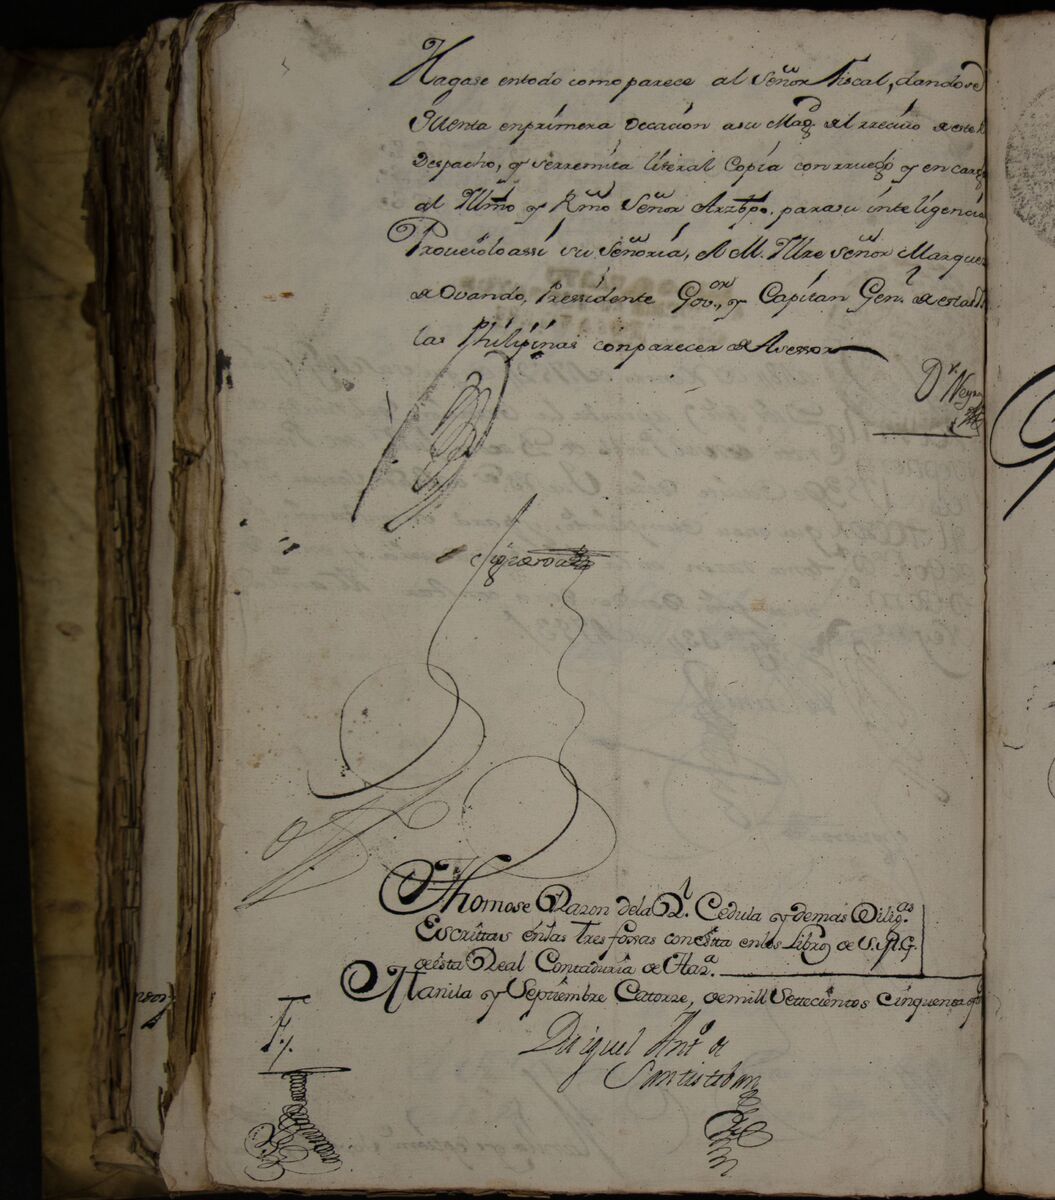 Hagase entodo como parece al Señor Fiscal, dandose
Quenta enprimera occacion asu Magd. del rrecivo de este
Despacho, y serremita literal Copia con rruego y en cargo
al Illmo y Rmo Señor Arzbpo. parasu inteligencia
Proveiolo assi su Señoria, el M. Iltre señor Marques
de Ovando, Pressidente Govor., y Capitan Genl. de estas Is
las Philipinas con parecer de Asessor
Dr. Neyra
Figueroa
Thomose Razon dela Rl. Cedula y demas Diligas.
Escrittas en las tres foxas con esta en los Libros de S.M.G.
de esta Real Contaduria de Haza.
Manila y Septiembre Catorze, de mill Settecientos Cinquenta y
Miguel Anto de
Santistevan